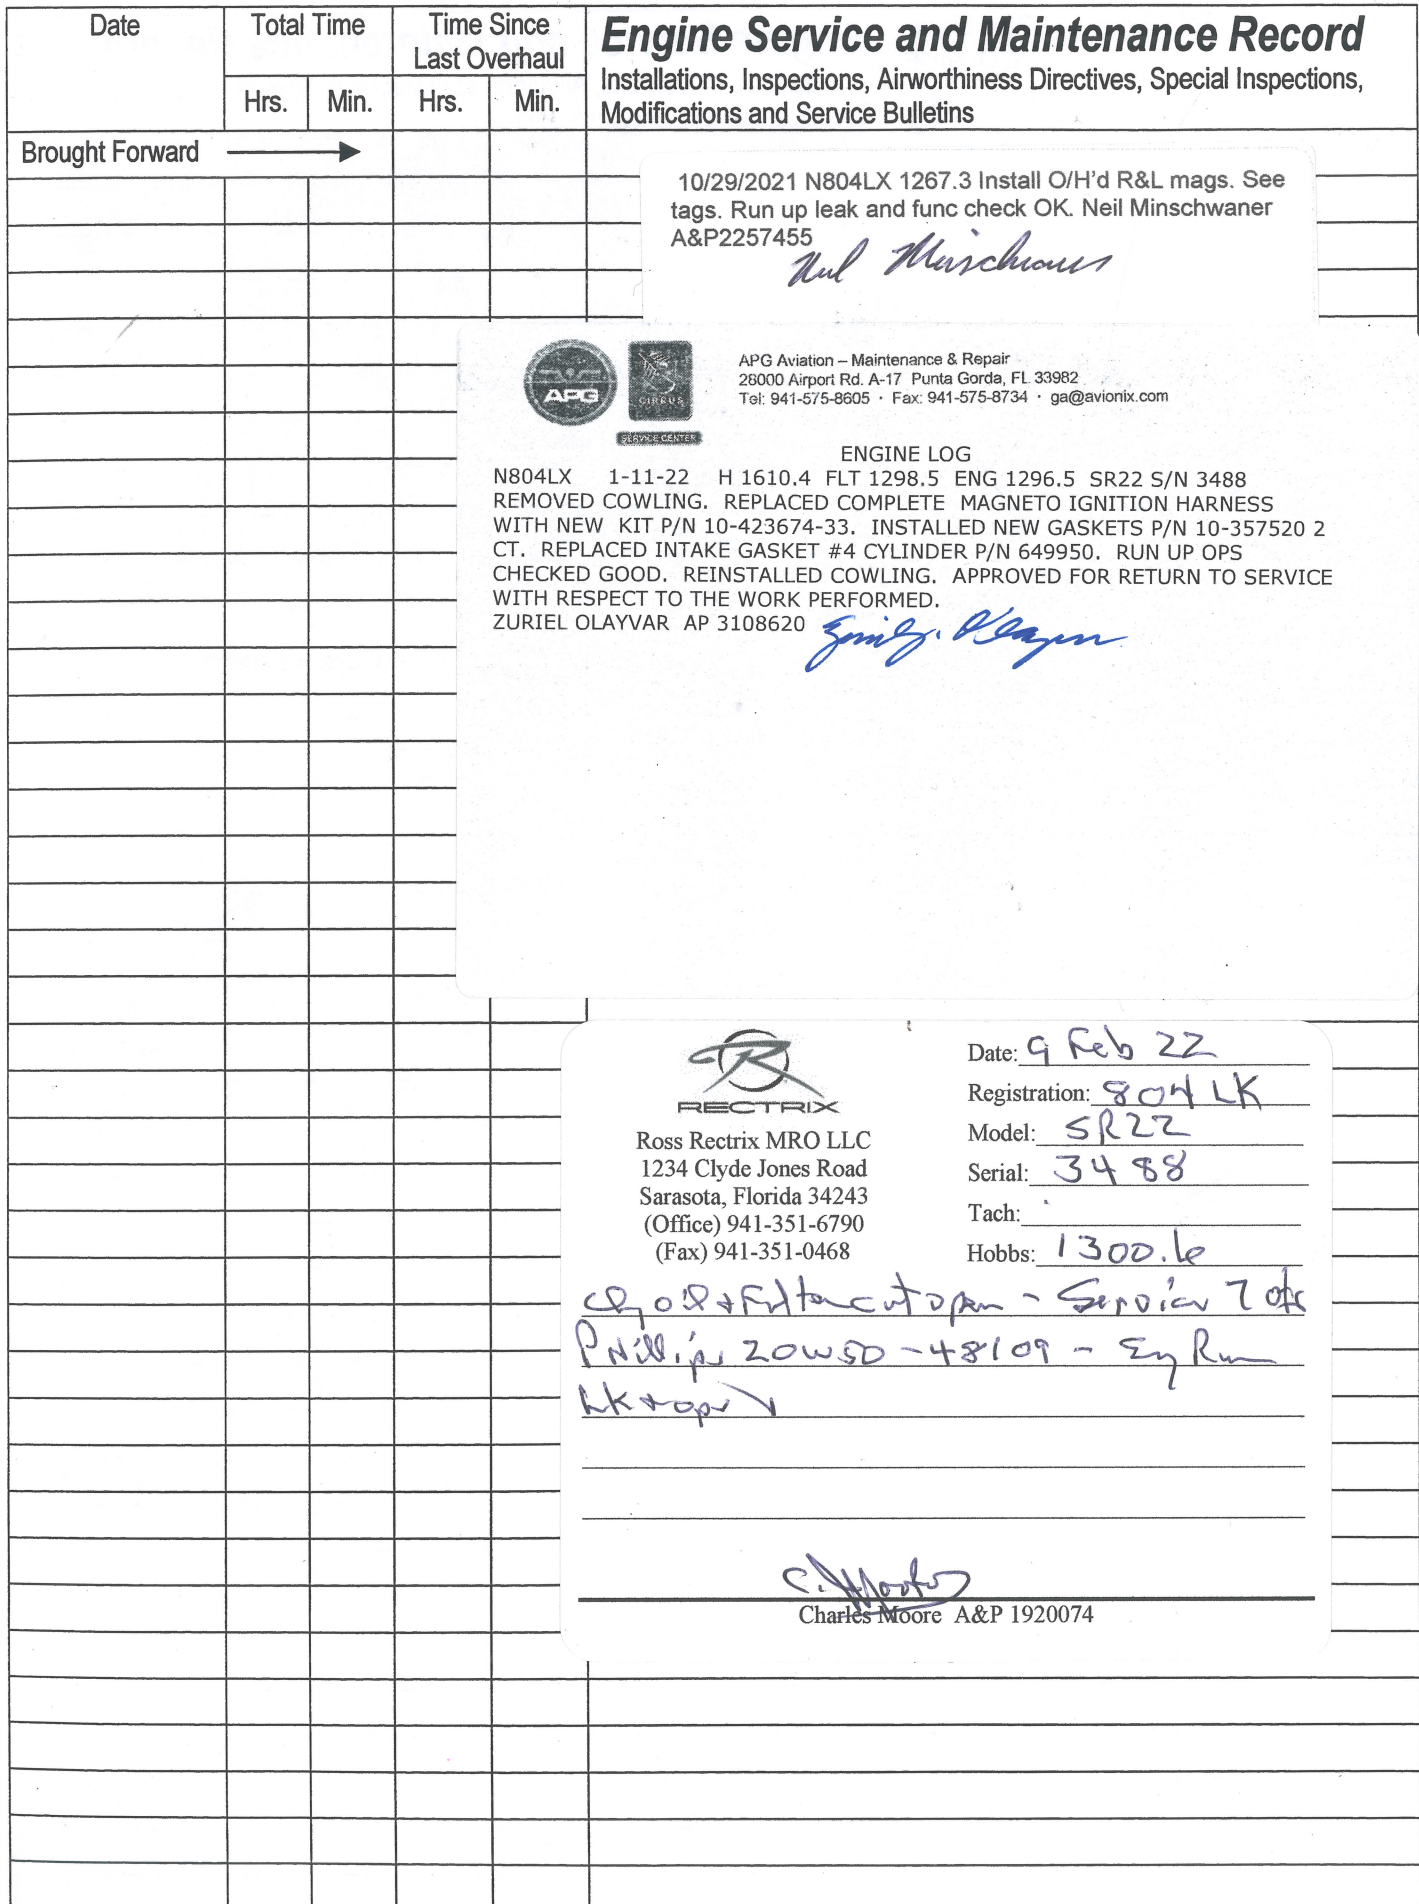 Date
Total Time
Time Since
Last Overhaul
Hrs.
Min.
Hrs.
Min.
Engine Service and Maintenance Record
Installations, Inspections, Airworthiness Directives, Special Inspections,
Modifications and Service Bulletins
Brought Forward
10/29/2021 N804LX 1267.3 Install O/H'd R&L mags. See
tags. Run up leak and func check OK. Neil Minschwaner
A&P2257455
Neil Minschwaner
APG
CIRRUS
SERVICE CENTER
APG Aviation – Maintenance & Repair
28000 Airport Rd. A-17 Punta Gorda, FL 33982
Tel: 941-575-8605 · Fax: 941-575-8734 · ga@avionix.com
ENGINE LOG
N804LX 1-11-22 H 1610.4 FLT 1298.5 ENG 1296.5 SR22 S/N 3488
REMOVED COWLING. REPLACED COMPLETE MAGNETO IGNITION HARNESS
WITH NEW KIT P/N 10-423674-33. INSTALLED NEW GASKETS P/N 10-357520 2
CT. REPLACED INTAKE GASKET #4 CYLINDER P/N 649950. RUN UP OPS
CHECKED GOOD. REINSTALLED COWLING. APPROVED FOR RETURN TO SERVICE
WITH RESPECT TO THE WORK PERFORMED.
ZURIEL OLAYVAR AP 3108620
RECTRIX
Ross Rectrix MRO LLC
1234 Clyde Jones Road
Sarasota, Florida 34243
(Office) 941-351-6790
(Fax) 941-351-0468
Date: 9 Feb 22
Registration: 804 LK
Model: SR22
Serial: 3488
Tach:
Hobbs: 1300.6
Chg oil & Filter cut open - Service 7 qts
Phillips 20W50 - 48109 - Eng Run
Lk & ops
Charles Moore A&P 1920074